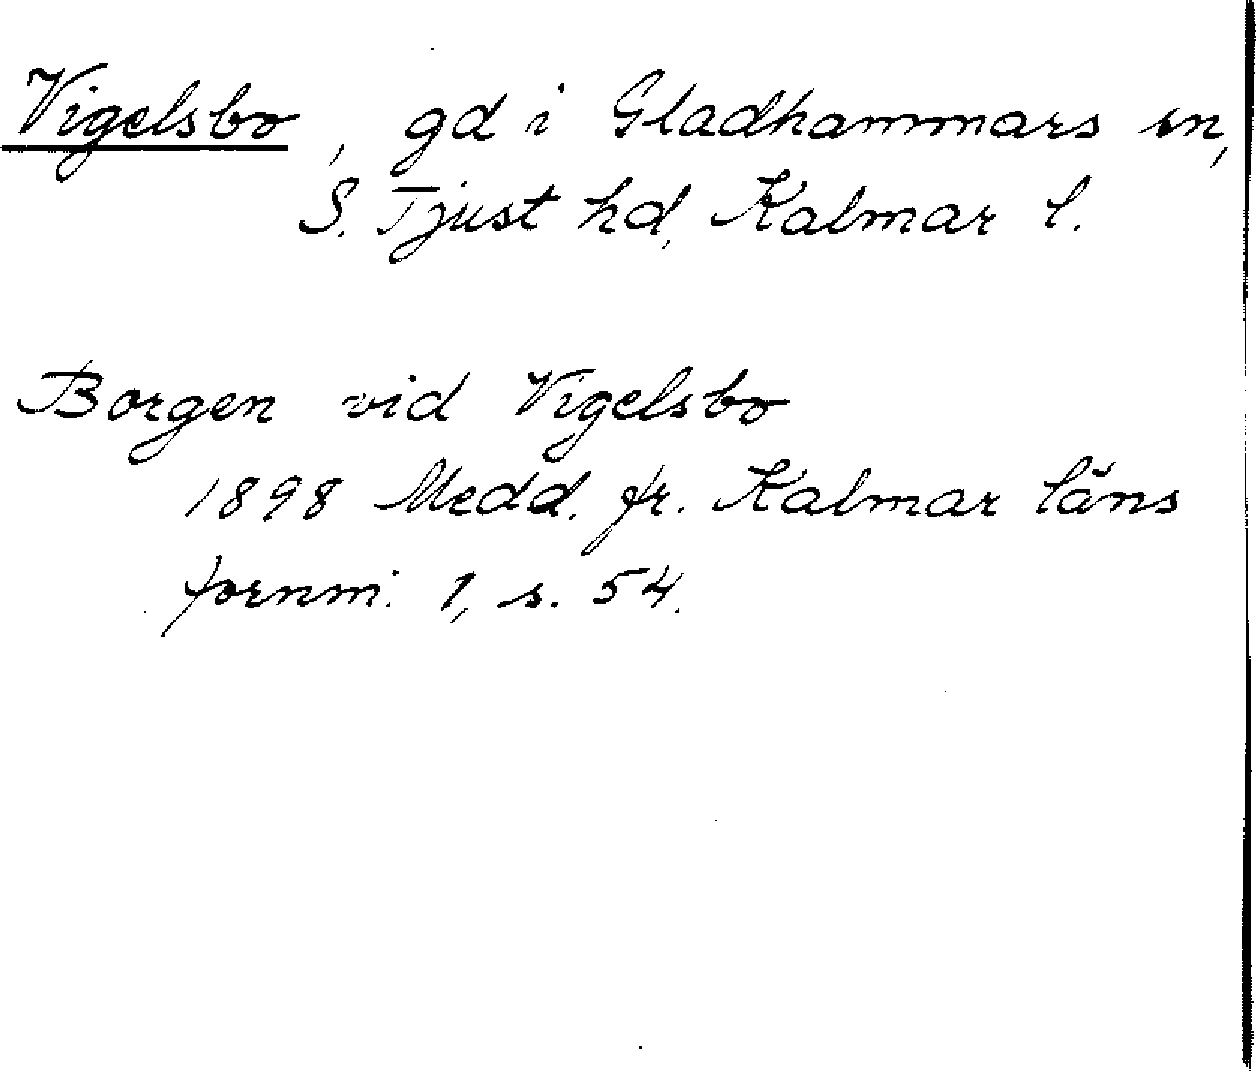 Vigelsbo, gd i Gladhammars sn,
S. Tjust hd, Kalmar l.
Borgen vid Vigelsbo
1898 Medd. fr. Kalmar läns
fornmi. 1, s. 54.